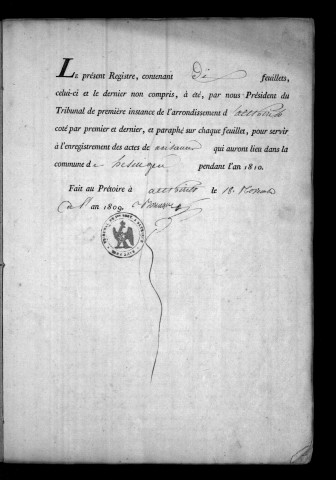 LE présent Registre, contenant Dix feuillets,
celui-ci et le dernier non compris, à été, par nous Président du
Tribunal de première instance de l'arrondissement d'
coté par premier et dernier, et paraphé sur chaque feuillet, pour servir
à l'enregistrement des actes de naissances qui auront lieu dans la
commune de pendant l'an 1810.
Fait au Prétoire à le 18
de l'an 1809.